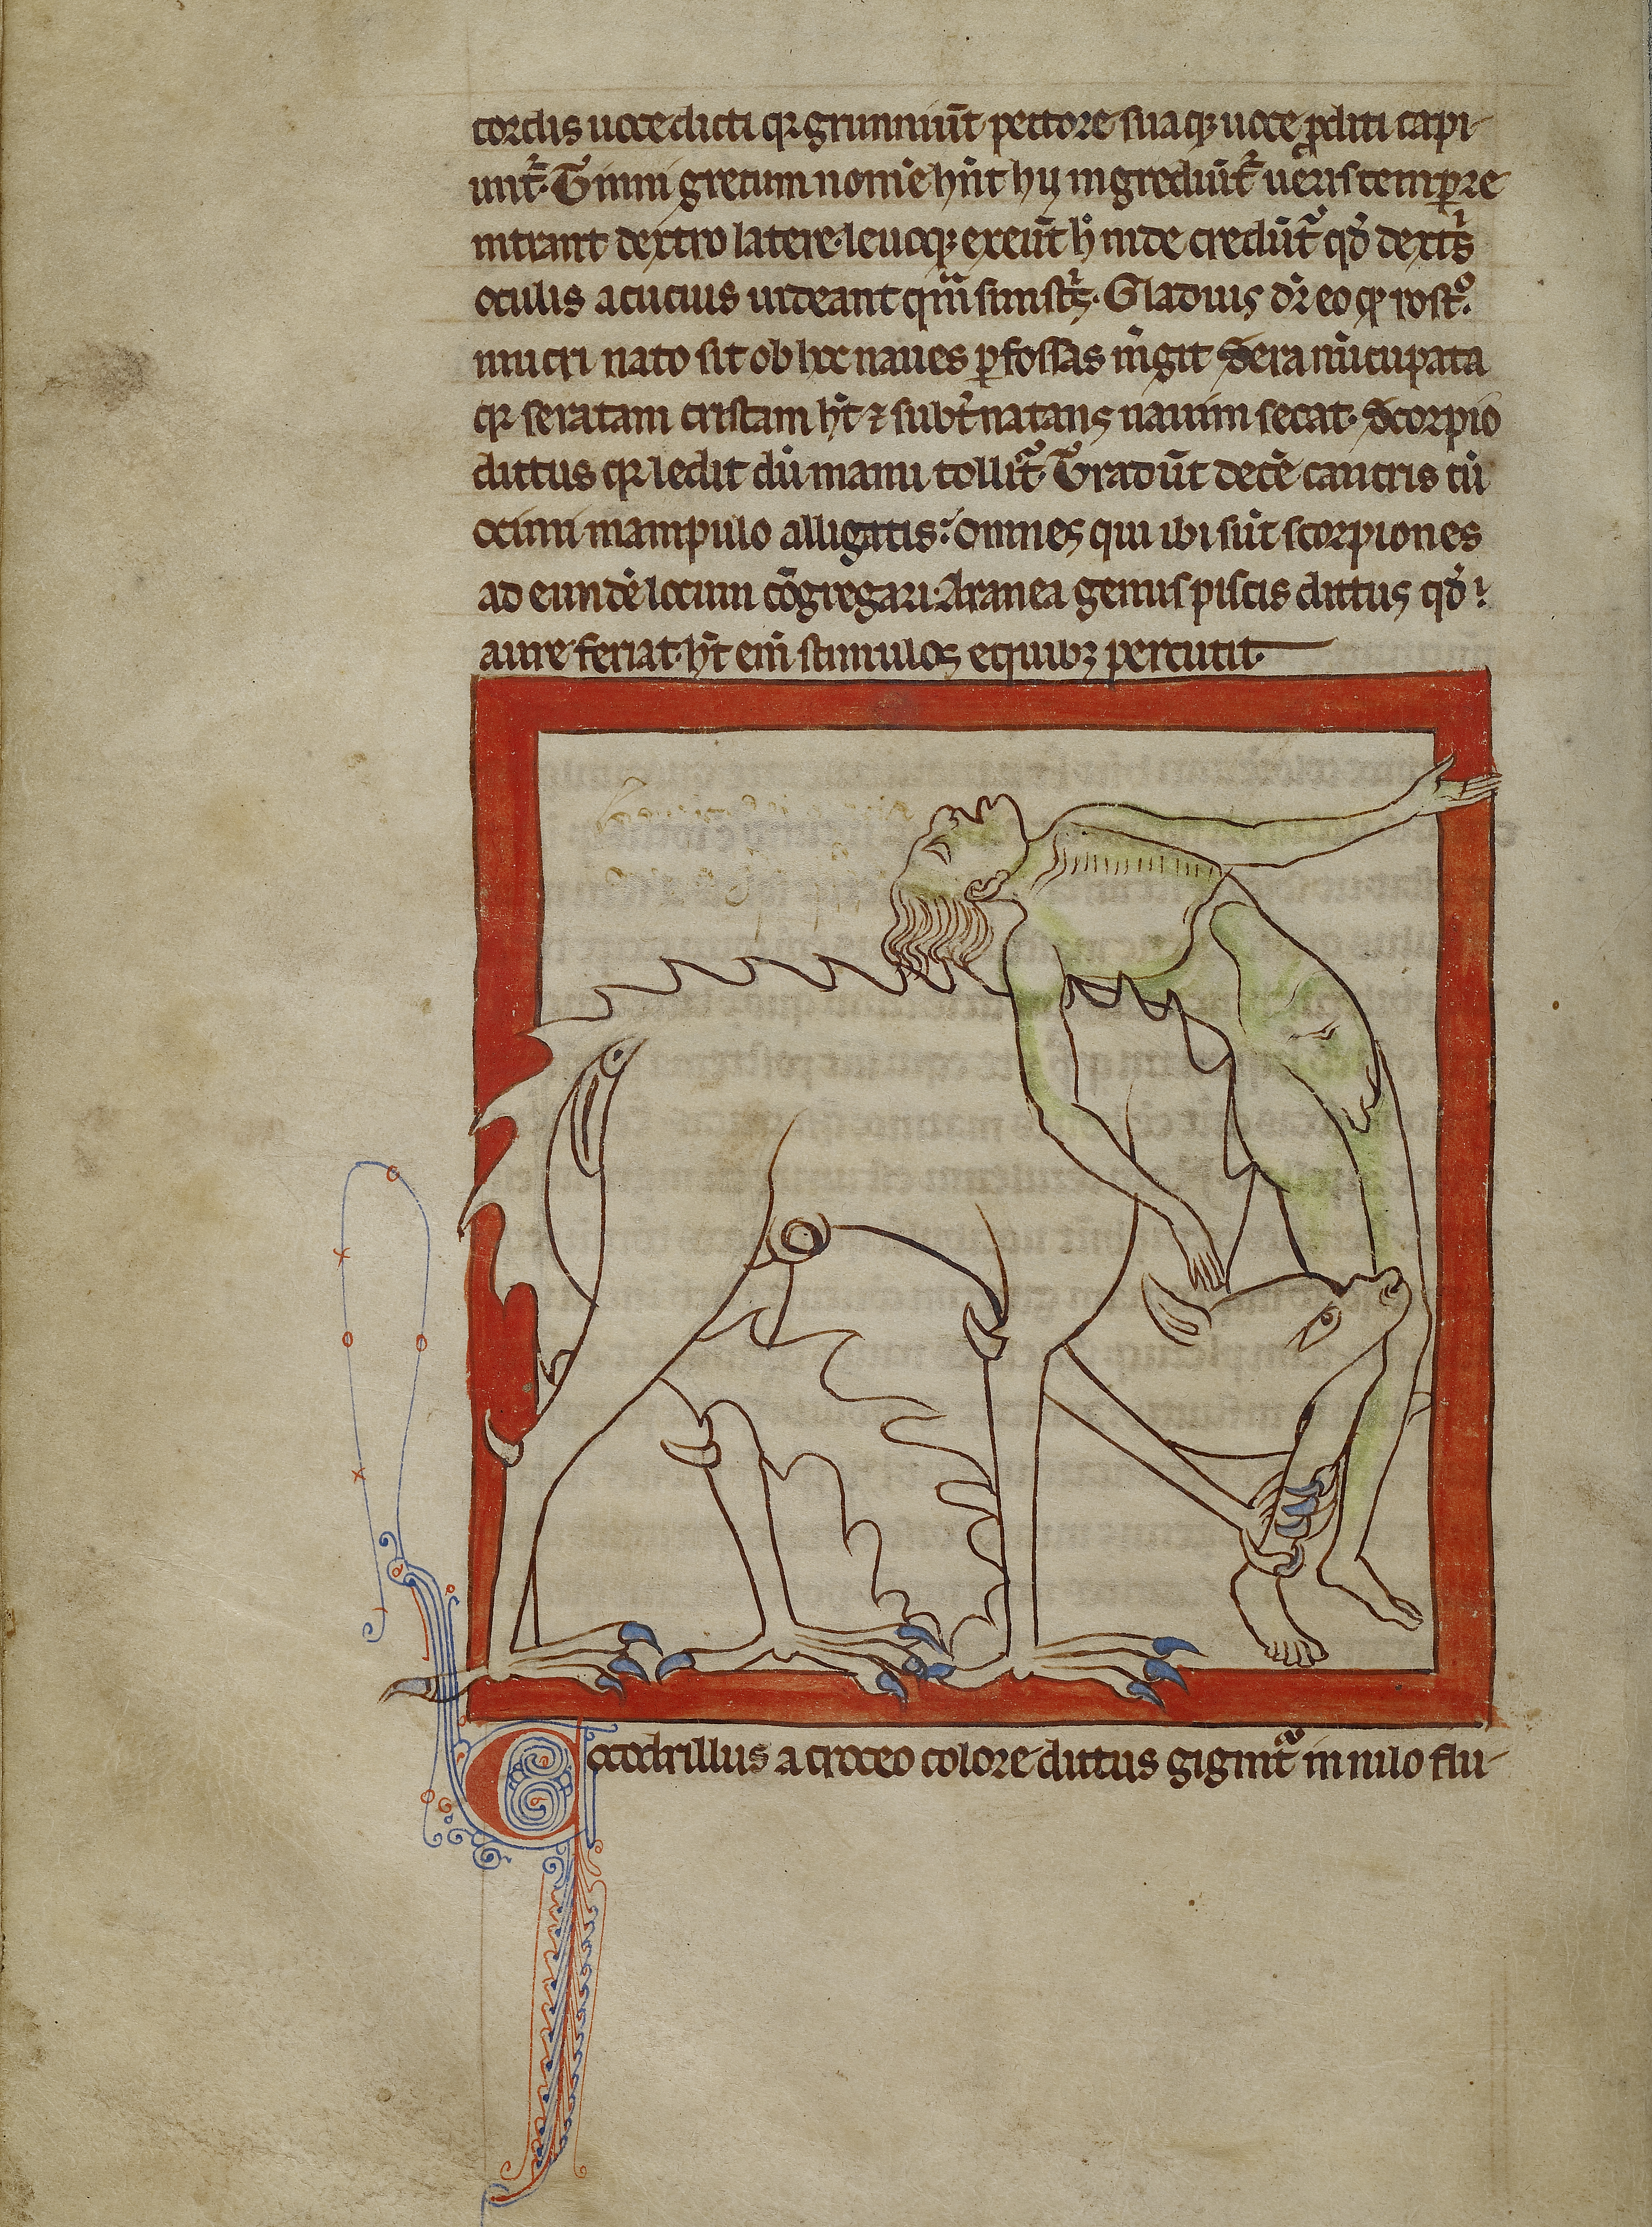 cordis uoce dicti qꝛ grunniūt pectore suaqꝫ uoce ꝓditi capi-
unt̄. Tinni grecum nom̄e hn̄t hii ingrediūt̄ ueris temꝑe
intrant dextro latere. leuoqꝫ exeūt h̊ inde credūt̄ qđ dext̄s
oculis acucius uideant qͣm sinist̄s. Gladius dr̄ eo qꝙ rost̊
mucri nato sit ob hoc naues ꝑfossas m̄git Sera nūcupata
qꝛ seratam cristam ht̄ ⁊ subt̄natans nauim secat. Scorpio
dictus qꝛ ledit dū manu tollit̄. Tradūt decē cancris cū
ocimi manipulo alligatis: omnes qui ibi sūt scorpiones
ad eundē locum cōgregari. Aranea genus piscis dictus qđ
aure feriat. ht̄ eni̅ stimulos equibꝫ percutit.
Cocodrillus a croceo colore dictus gignit̄ in nilo flu-